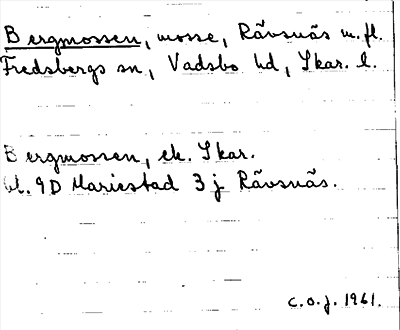 Bergmossen, mosse, Rävsnäs m.fl.
Fredsbergs sn, Vadsbo hd, Skar. l.
Bergmossen, ek. Skar.
bl. 9D Mariestad 3 j Rävsnäs.
C.O.J. 1961.